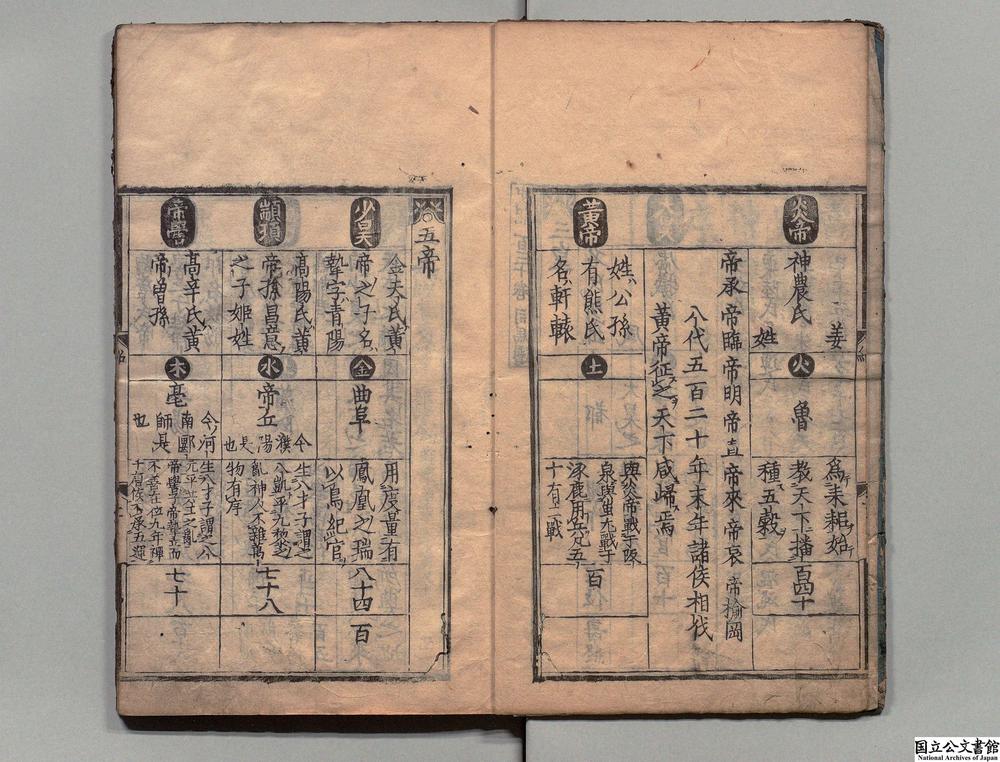 炎帝
神農氏
姜
姓
火
魯
為耒耜始
教天下播
種五穀
百四十
帝承 帝臨 帝明 帝直 帝來 帝哀 帝揄岡
八代五百二十年末年諸侯相伐
黃帝征之天下咸歸焉
黃帝
姓公孫
有熊氏
名軒轅
土
與炎帝戰于阪
泉與蚩尤戰于
涿鹿用兵凡五
十有二戰
百
五帝
少昊
金天氏黃
帝之子名
摯字青陽
金
曲阜
用度量有
鳳凰之瑞
以鳥紀官
八十四
百
顓頊
高陽氏黃
帝孫昌意
之子姬姓
水
帝丘
今
濮
陽
是
也
生八才子謂之
八凱平九黎之
亂神人不雜萬
物有序
七十八
帝嚳
高辛氏黃
帝曾孫
木
亳
今河
南郾
師是
也
生八才子謂之八
元平共工之亂
帝嚳子帝摯立而
不善在位九年禪
七十
国立公文書館
National Archives of Japan